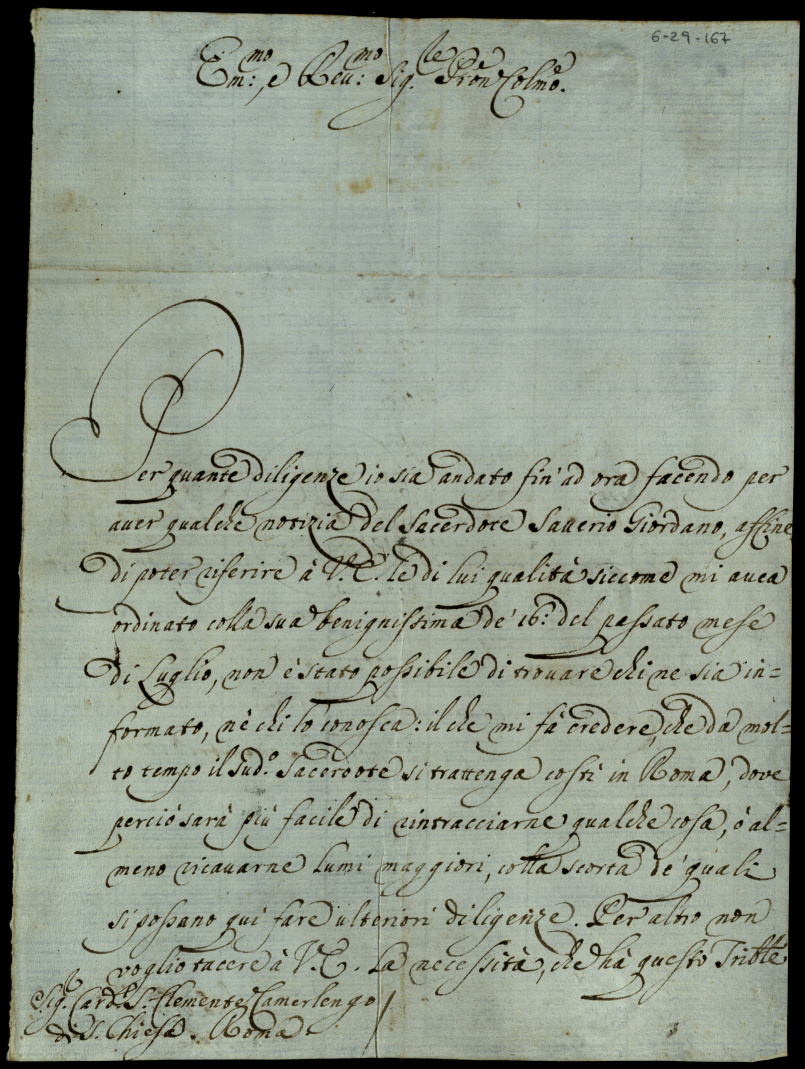 6-29-167
Em:mo, e Reu:mo Sig.re Pron Colmo.
Per quante diligenze io sia andato fin' ad ora facendo per
auer qualche notizia del Sacerdote Sauerio Giordano, affine
di poter riferire à V.E. le di lui qualità siccome mi auea
ordinato colla sua benignissima de' 16: del passato mese
di Luglio, non è stato possibile di trouare chi ne sia in=
formato, nè chi lo conosca: il che mi fà credere, che da mol=
to tempo il sud.o Sacerdote si trattenga costì in Roma, dove
perciò sarà più facile di rintracciarne qualche cosa, ò al=
meno ricauarne lumi maggiori, colla scorta de' quali
si possano qui fare ulteriori diligenze. Per altro non
voglio tacere à V.E. la necessità, che hà questo Trible
Sig.r Card.l S. Clemente Camerlengo
di S. Chiesa. Roma